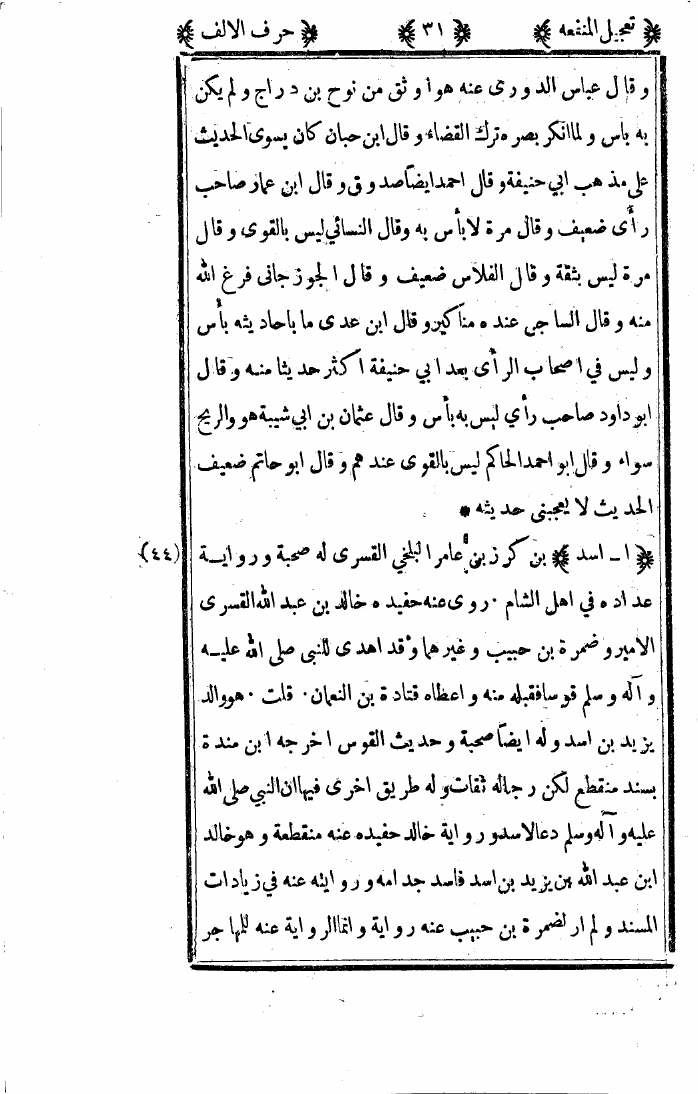 تعجيل المنفعه ٣١ حرف الالف
و قال عباس الدورى عنه هو اوثق من نوح بن دراج و لم يكن
به باس و لما انكر بصره ترك القضاء و قال ابن حبان كان يسوى الحديث
على مذهب ابي حنيفة و قال احمد ايضاً صدوق و قال ابن عمار صاحب
رأى ضعيف و قال مرة لا بأس به وقال النسائي ليس بالقوى و قال
مرة ليس بثقة و قال الفلاس ضعيف و قال الجوزجانى فرغ الله
منه و قال الساجى عنده مناكير و قال ابن عدى ما باحاديثه بأس
و ليس في اصحاب الرأى بعد ابي حنيفة اكثر حديثا منه و قال
ابو داود صاحب رأي ليس به بأس و قال عثمان بن ابي شيبة هو والريح
سواء و قال ابو احمد الحاكم ليس بالقوى عندهم و قال ابو حاتم ضعيف
الحديث لا يعجبنى حديثه *
ا - اسد بن كرز بن عامر البلخي القسرى له صحبة و رواية (٤٤)
عداده في اهل الشام ٠ روى عنه حفيده خالد بن عبد الله القسرى
الامير و ضمرة بن حبيب و غيرهما و قد اهدى للنبى صلى الله عليه
و آله و سلم قوسا فقبله منه و اعطاه قتادة بن النعمان ٠ قلت ٠ هو والد
يزيد بن اسد و له ايضاً صحبة و حديث القوس اخرجه ابن مندة
بسند منقطع لكن رجاله ثقات و له طريق اخرى فيها ان النبي صلى الله
عليه و آله وسلم دعا لاسد و رواية خالد حفيده عنه منقطعة و هو خالد
ابن عبد الله بن يزيد بن اسد فاسد جد ابيه و روايته عنه في زيادات
المسند و لم ار لضمرة بن حبيب عنه رواية و انما الرواية عنه للمهاجر